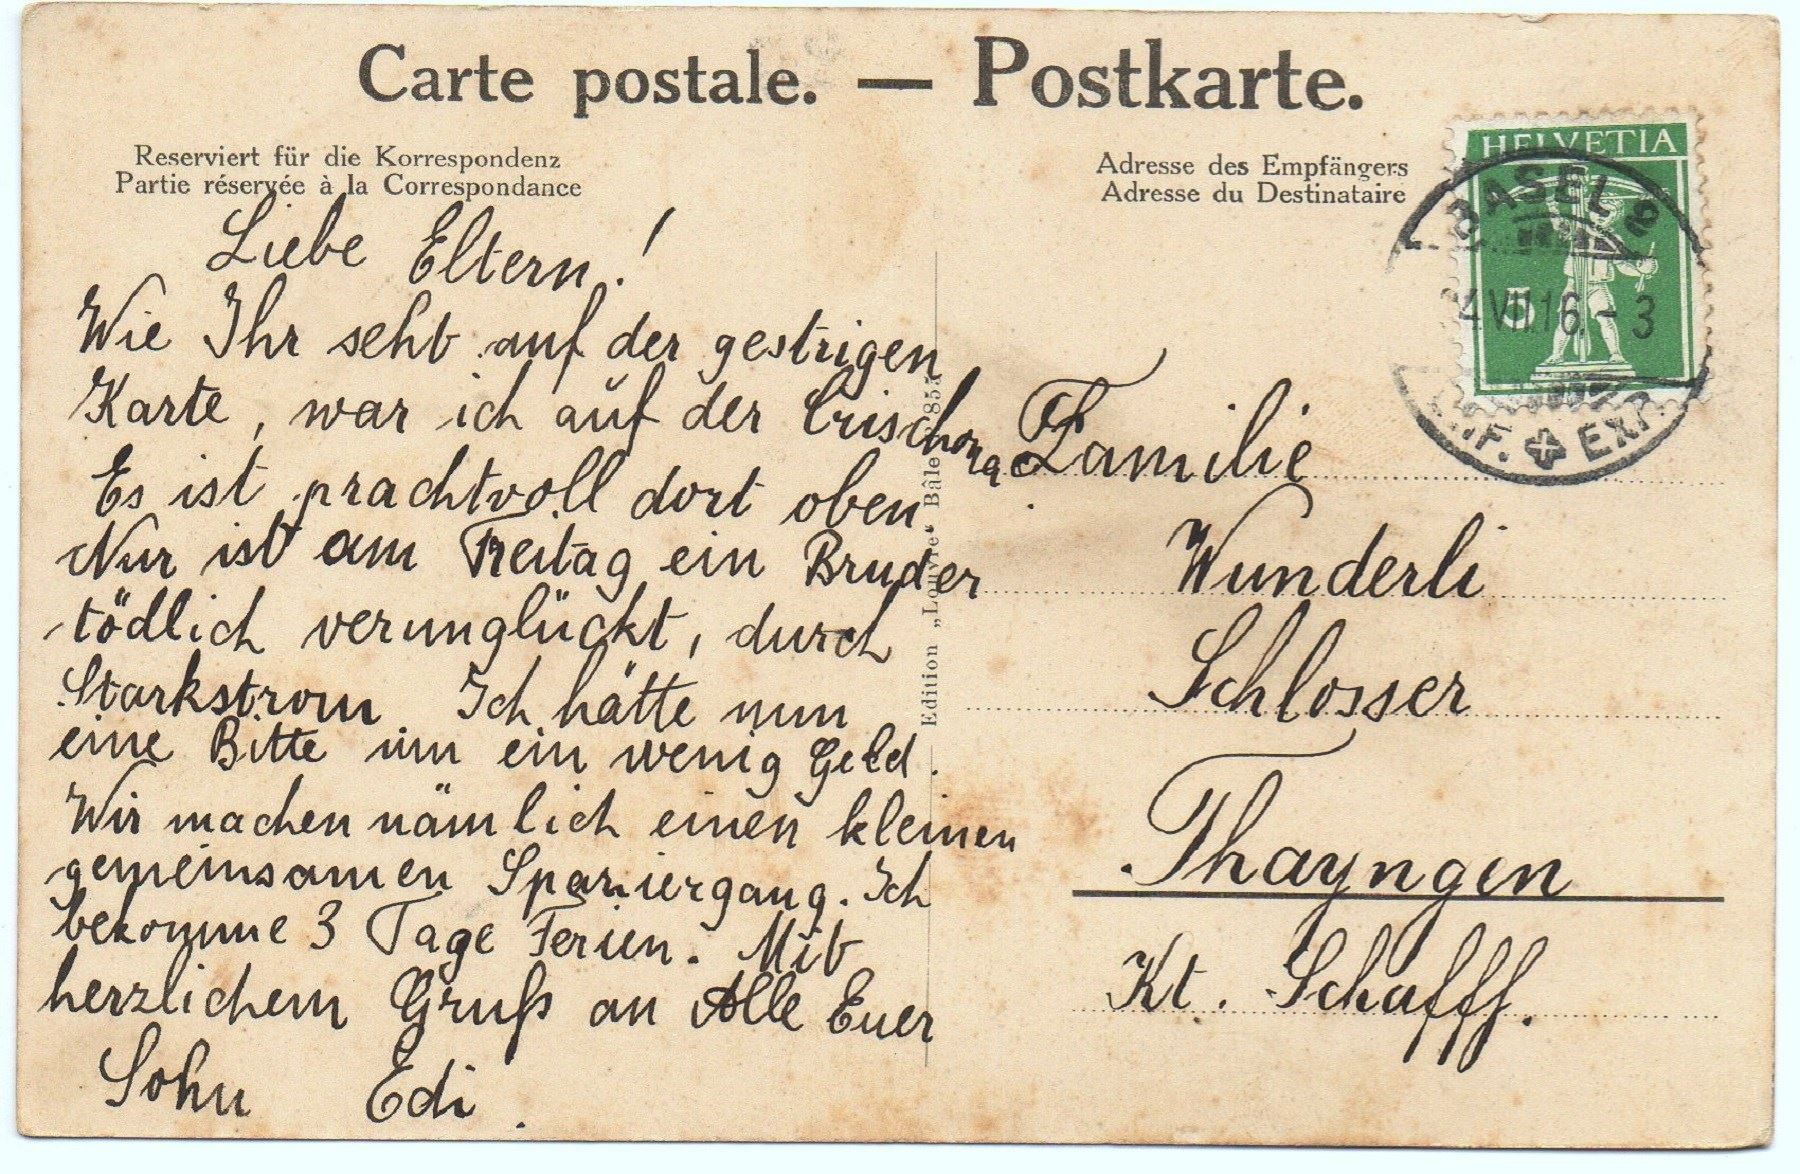 Carte postale. — Postkarte.
Reserviert für die Korrespondenz
Partie réservée à la Correspondance
Adresse des Empfängers
Adresse du Destinataire
HELVETIA
5
BASEL 9
4 VII 16 - 3
EXP.
Liebe Eltern!
Wie Ihr seht auf der gestrigen
Karte, war ich auf der Crischona
Es ist prachtvoll dort oben
Nur ist am Freitag ein Bruder
tödlich verunglückt, durch
Starkstrom. Ich hätte nun
eine Bitte um ein wenig Geld.
Wir machen nämlich einen kleinen
gemeinsamen Spaziergang. Ich
bekomme 3 Tage Ferien. Mit
herzlichem Gruß an Alle Euer
Sohn Edi.
Edition „Louvre“ Bâle 855
Familie
Wunderli
Schlosser
Thayngen
Kt. Schaffh.